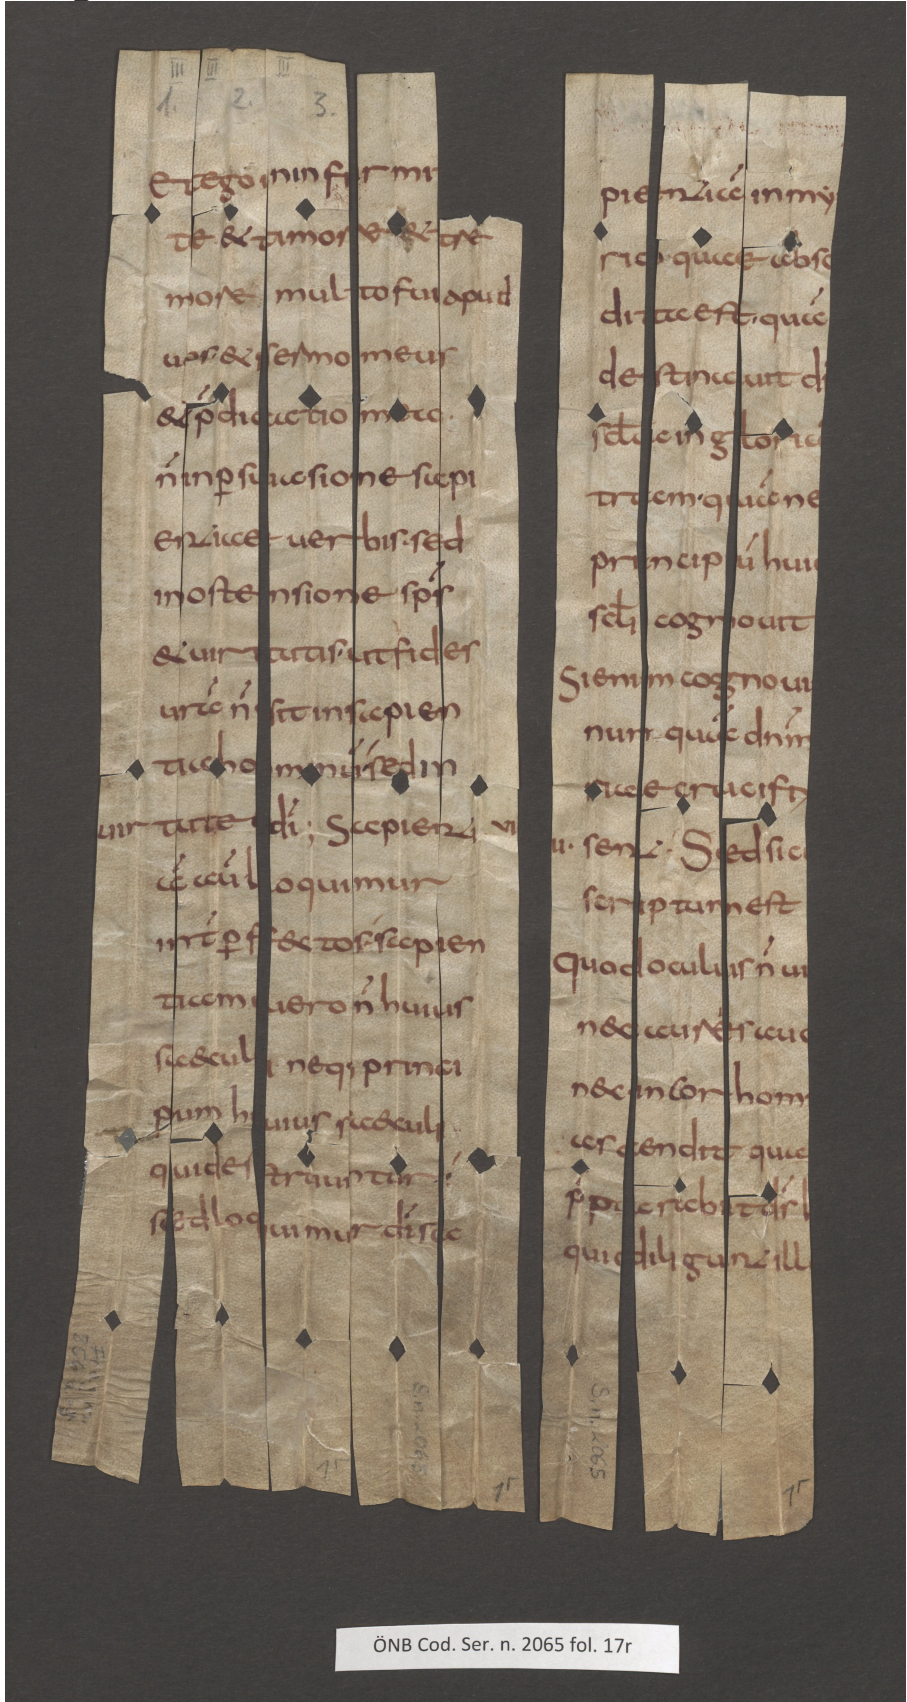 III III III
1. 2. 3.
Et ego in infirmi
te & timore & tre
more multo fui apud
uos & sermo meus
& p̄dicatio mea.
n̄ in ꝑsuasione sapi
entiae uerbis. sed
in ostensione sp̄s
& uirtutis. ut fides
urā n̄ sit in sapien
tia hominū. sed in
uirtute dī; Sapienti
ā aū loquimur
int̄ ꝑfectos. sapien
tiam uero n̄ huius
saeculi neq; princi
pum huius saeculi
qui destruuntur
sed loquimur dī sa
pientiā in my
rio. quae absc
dita est. quā
destinauit dī
sc̄la in gloriā
tram. quā ne
principū huiu
sc̄li cognouit
Si enim cognoui
nunquā dn̄m
riae crucifi
Sed sicu
scriptum est
Quod oculus n̄ ui
nec auris au
nec in cor homi
ascendit quae
p̄parabit dī
qui diligunt ill
S.n. 2065
1r
S.n. 2065
1r
1r
ÖNB Cod. Ser. n. 2065 fol. 17r